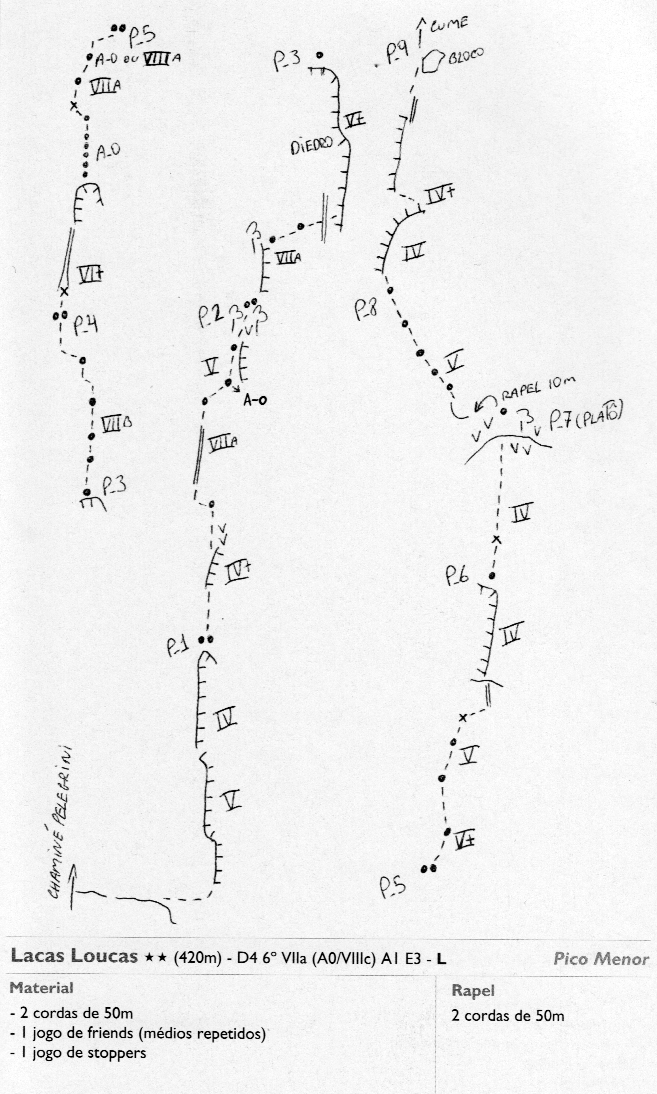 P_5
A-0 ou VIIIA
VIIA
A-0
VI+
P_4
VIIB
P_3
P_3
V+
DIEDRO
VIIA
P_2
V
A-0
VIIA
IV+
P_1
IV
V
CHAMINÉ PELEGRINI
CUME
P_9
BLOCO
IV+
IV
P_8
V
RAPEL 10M
P_7 (PLATÔ)
IV
P_6
IV
V
V+
P_5
Lacas Loucas ★★ (420m) - D4 6º VIIa (A0/VIIIc) A1 E3 - L
Pico Menor
Material
- 2 cordas de 50m
- 1 jogo de friends (médios repetidos)
- 1 jogo de stoppers
Rapel
2 cordas de 50m